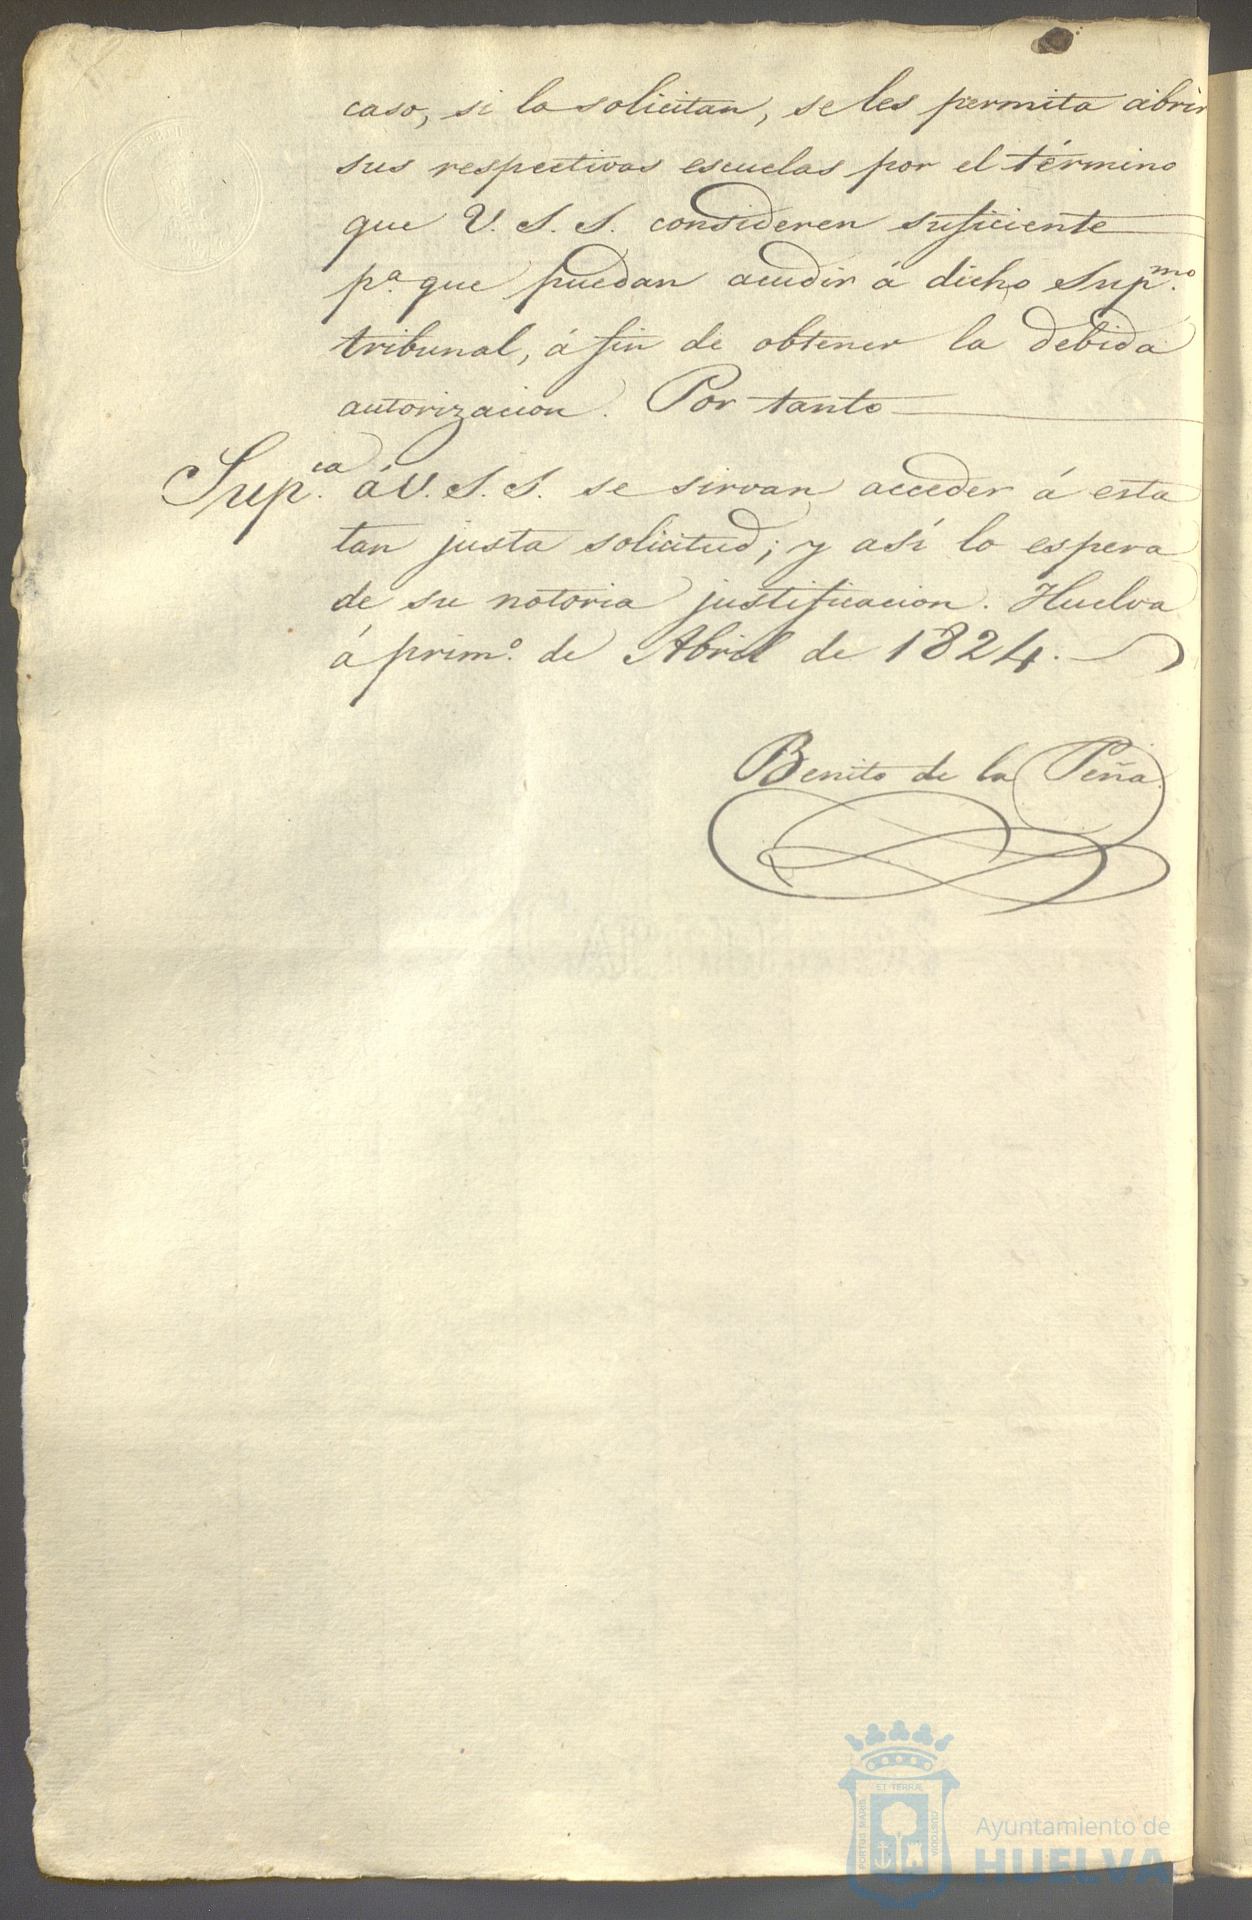 caso, si lo solicitan, se les permita abrir
sus respectivas escuelas por el término
que V. S. S. consideren suficiente
pª. que puedan acudir á dicho Sup.mo
tribunal, á fin de obtener la debida
autorizacion. Por tanto
Sup.ca á V. S. S. se sirvan acceder á esta
tan justa solicitud; y así lo espera
de su notoria justificacion. Huelva
á prim.º de Abril de 1824.
Benito de la Peña
ET TERRÆ
PORTUS MARIS
CUSTODIA
Ayuntamiento de
HUELVA